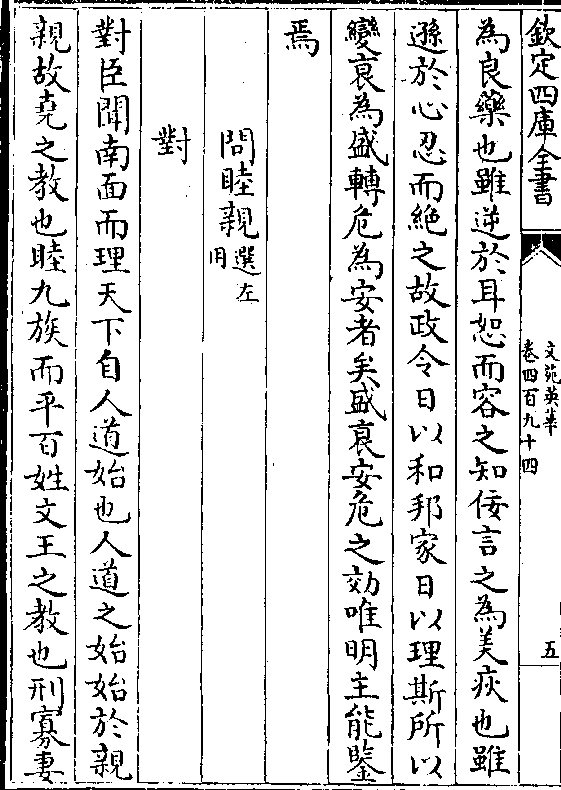 欽定四庫全書
文苑英華
卷四百九十四
五
為良藥也雖逆於耳恕而容之知佞言之為美疢也雖
遜於心忍而絶之故政令日以和邦家日以理斯所以
變衰為盛轉危為安者矣盛衰安危之効唯明主能鍳
焉
問睦親選左
用
對
對臣聞南面而理天下自人道始也人道之始始於親
親故堯之教也睦九族而平百姓文王之教也刑寡妻